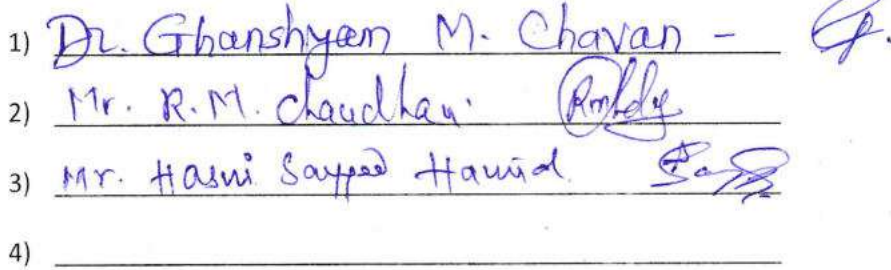 1) Dr. Ghanshyam M. Chavan -
2) Mr. R.M. Chaudhari
3) Mr. Hasni Sayyed Hamid
4)